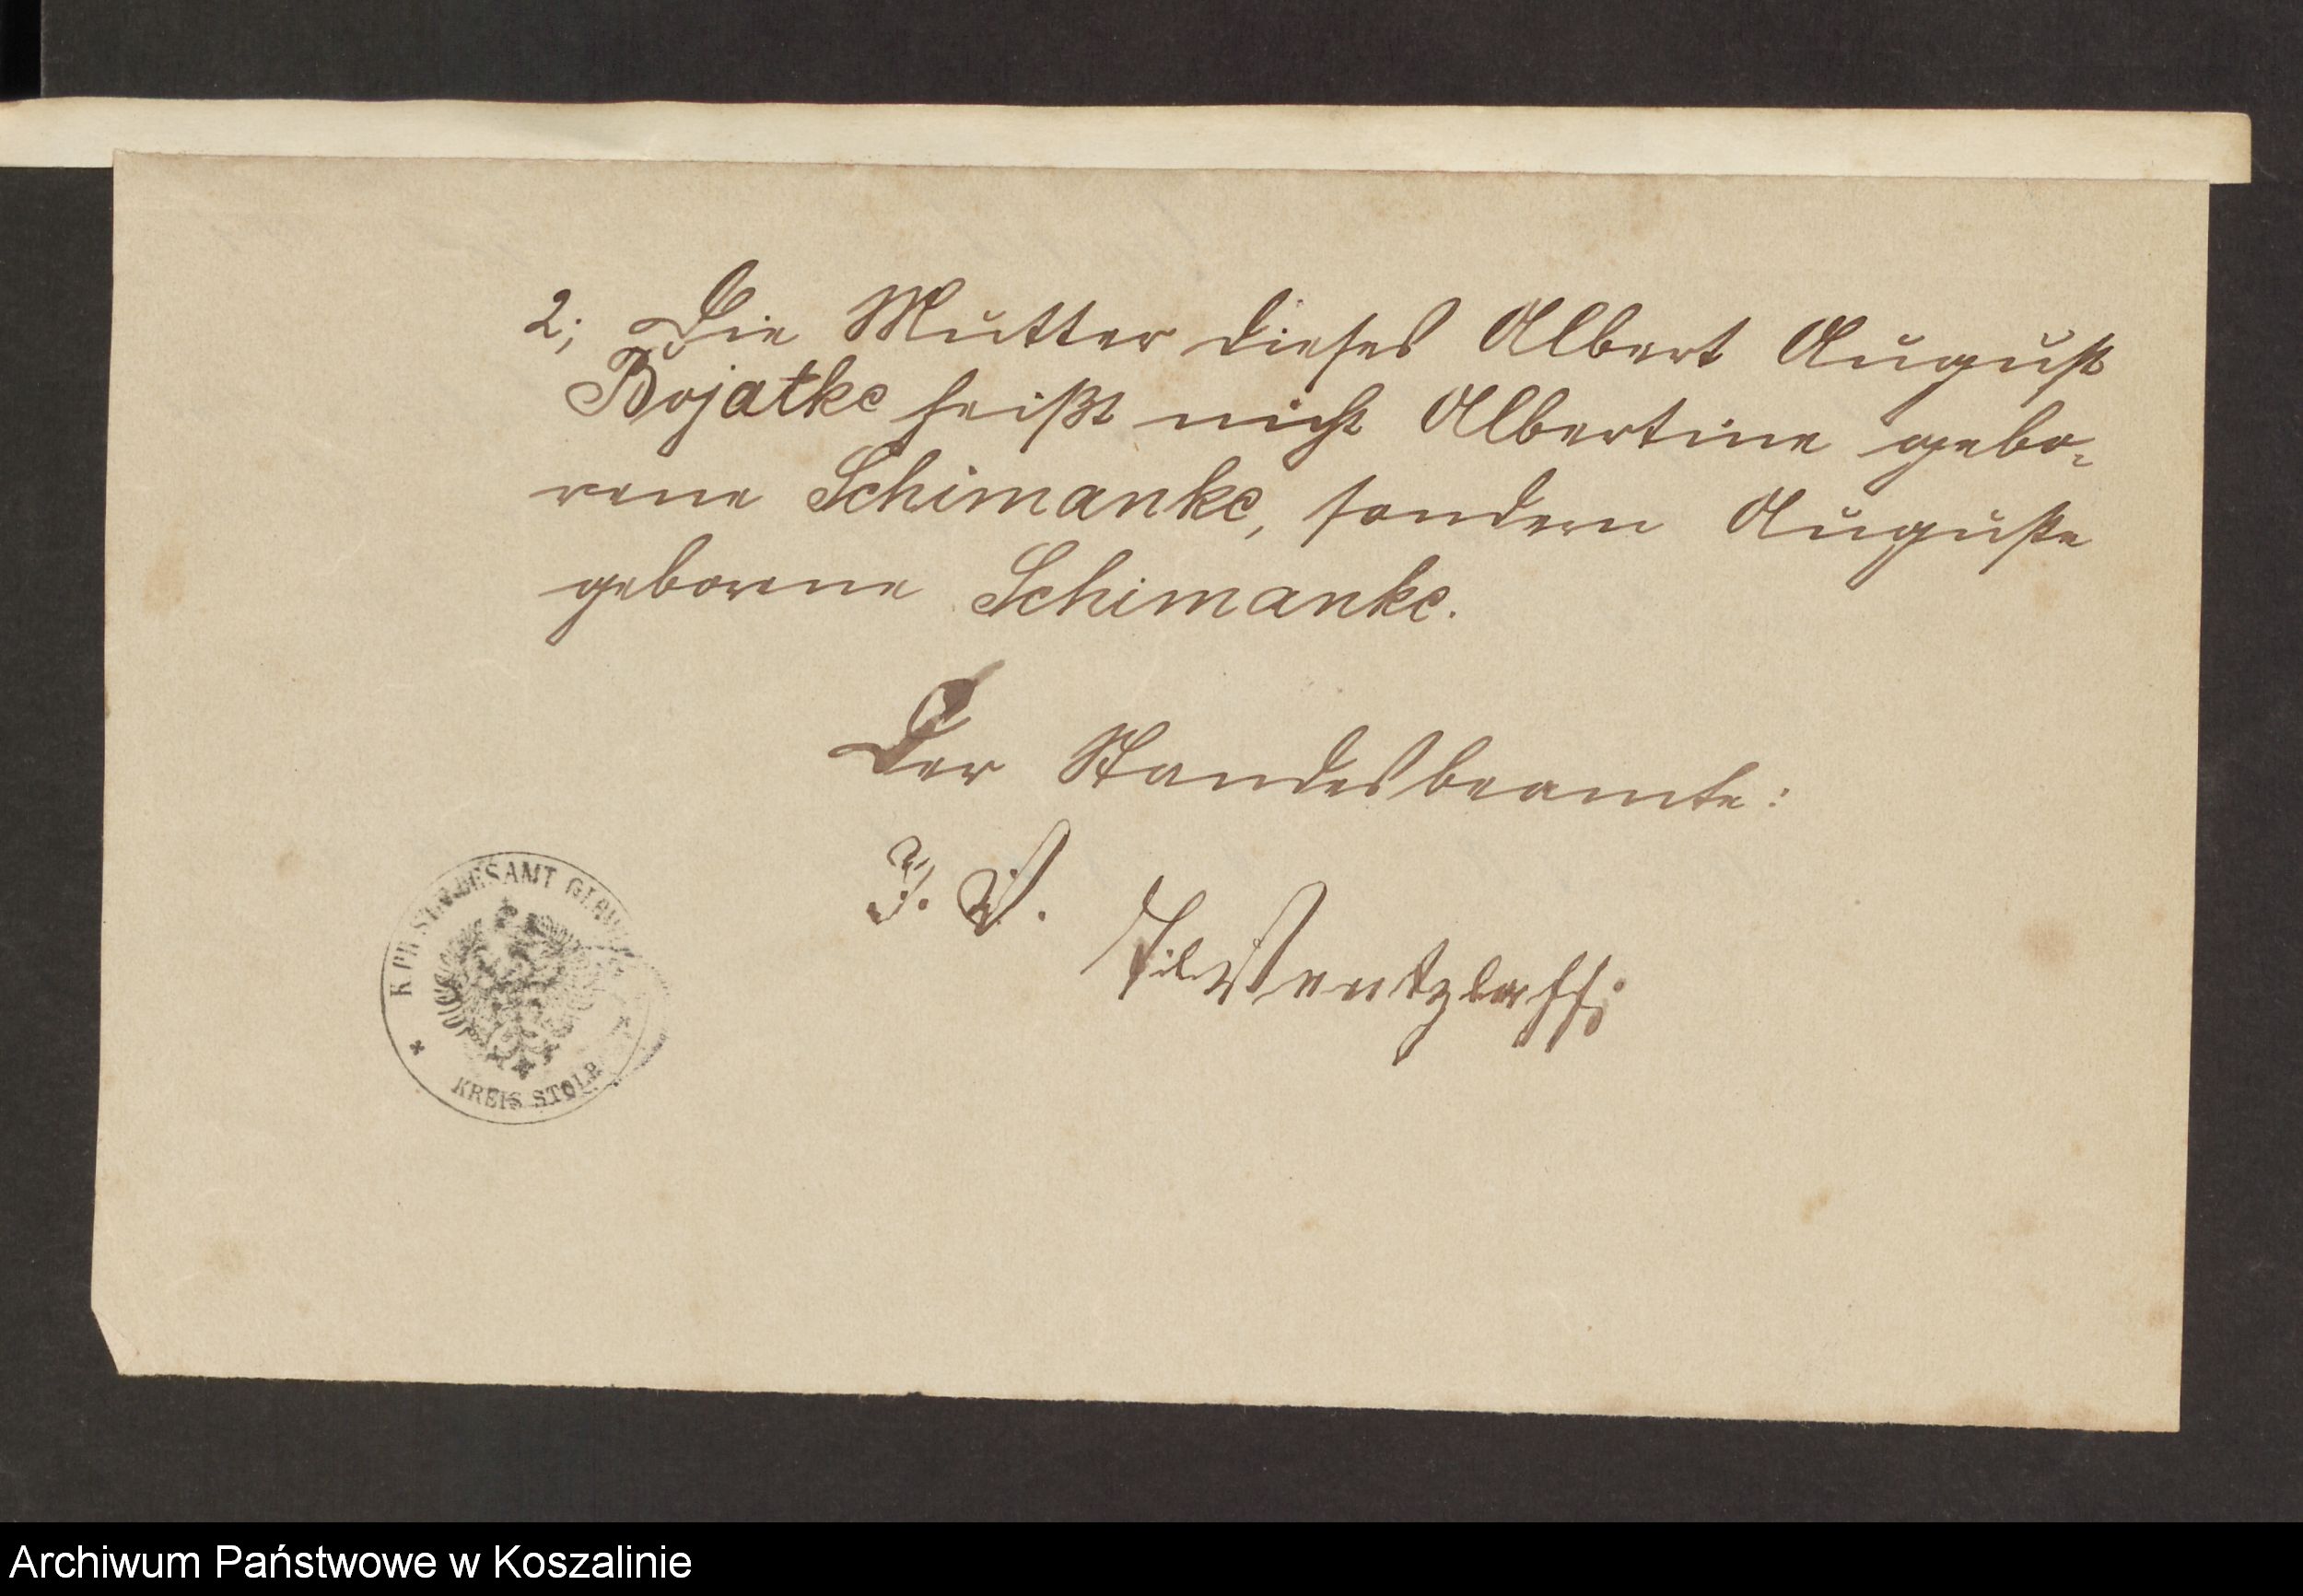 2; Die Mutter dieses Albert August
Bojatke heißt nicht Albertine gebo-
rene Schimanke, sondern Auguste
geborene Schimanke.
Der Standesbeamte:
J. V.
Wentzlaff
K. PR. STANDESAMT
KREIS STOLP
Archiwum Państwowe w Koszalinie